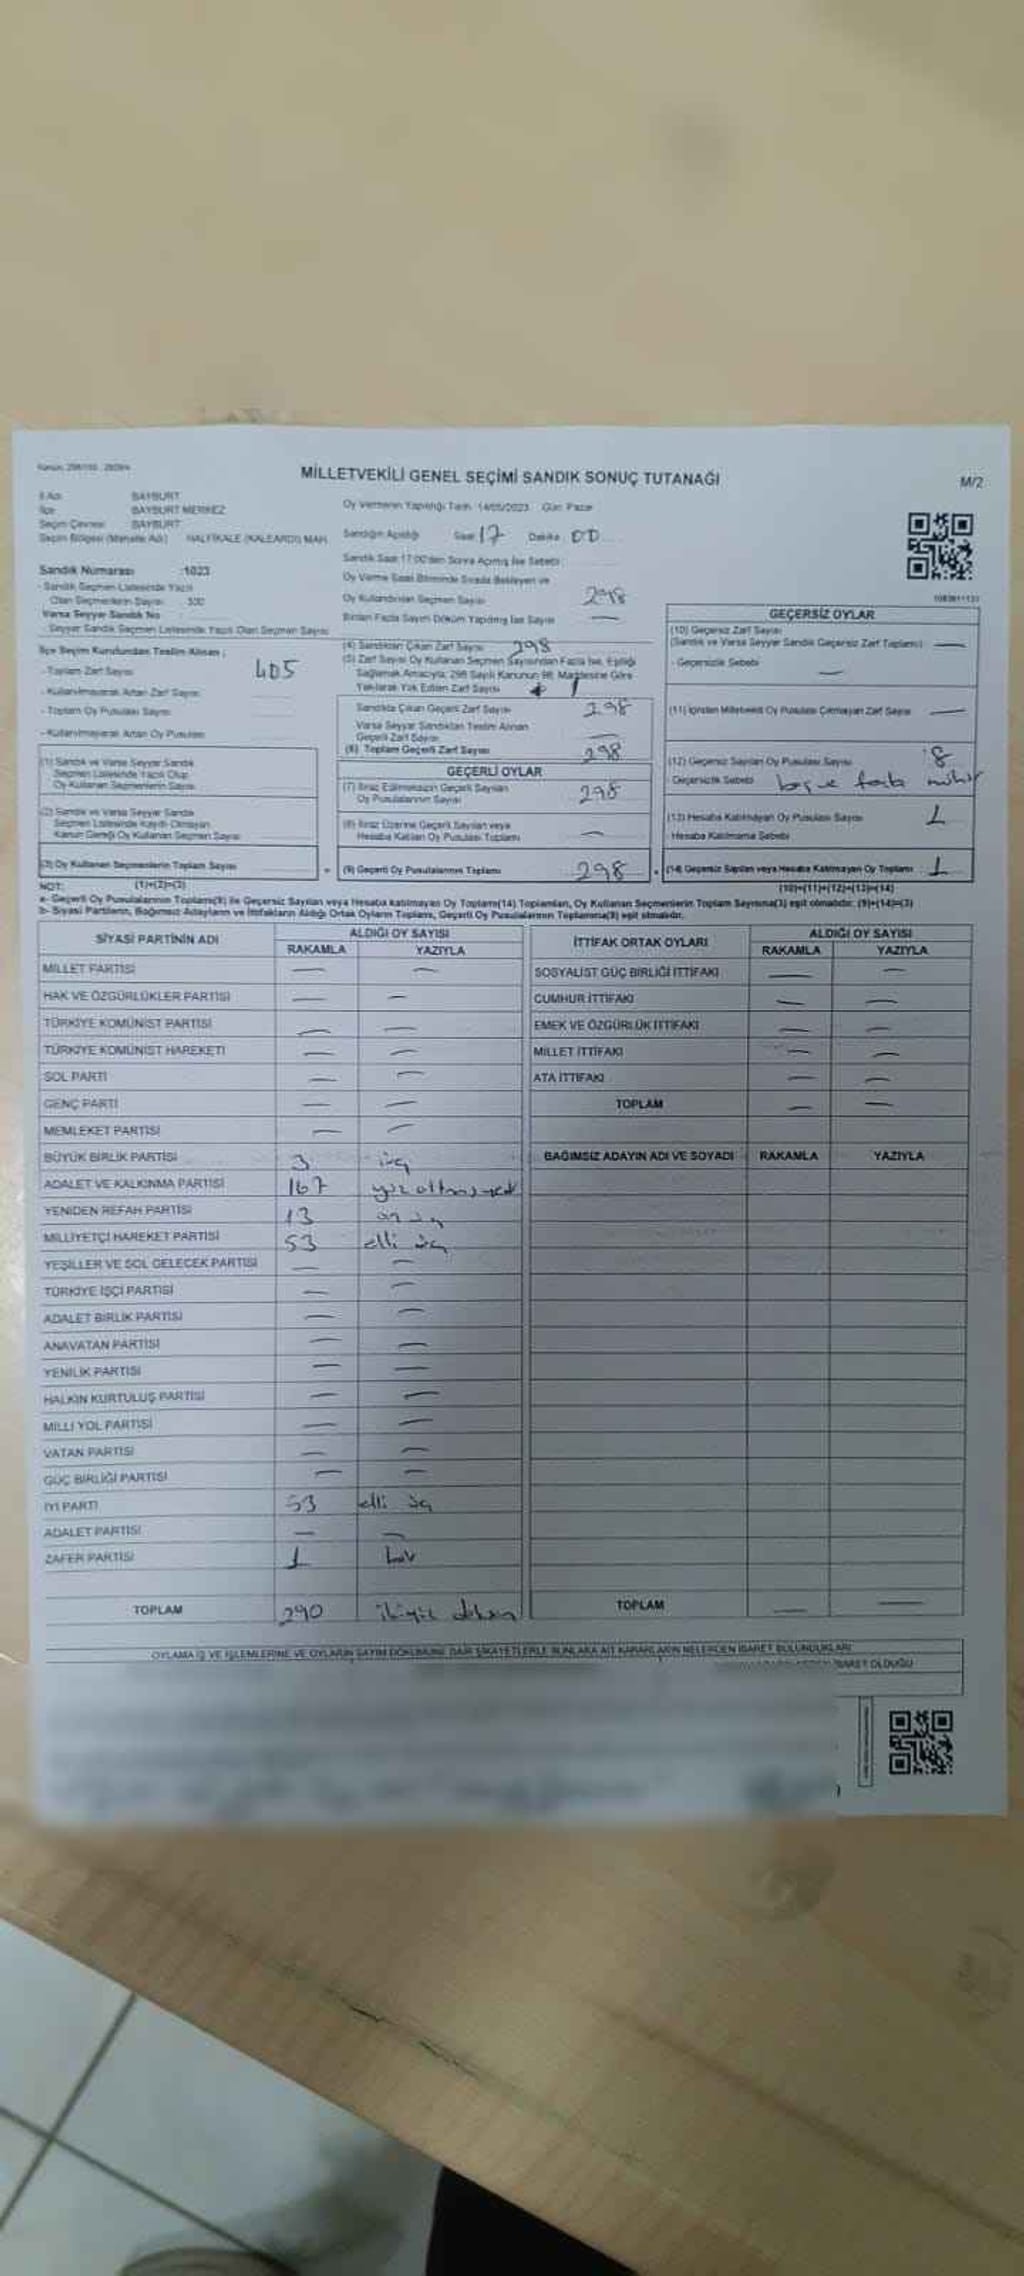 MİLLETVEKİLİ GENEL SEÇİMİ SANDIK SONUÇ TUTANAĞI
M/2
İl Adı BAYBURT
İlçe BAYBURT MERKEZ
Seçim Çevresi BAYBURT
Seçim Bölgesi (Mahalle Adı) HALFİKALE (KALEARDI) MAH.
Sandık Numarası :1023
- Sandık Seçmen Listesinde Yazılı
Olan Seçmenlerin Sayısı
Varsa Seyyar Sandık No
Seyyar Sandık Seçmen Listesinde Yazılı Olan Seçmen Sayısı
İlçe Seçim Kurulundan Teslim Alınan ;
- Toplam Zarf Sayısı 405
- Kullanılmayarak Artan Zarf Sayısı
- Toplam Oy Pusulası Sayısı
- Kullanılmayarak Artan Oy Pusulası
(1) Sandık ve Varsa Seyyar Sandık
Seçmen Listesinde Yazılı Olup
Oy Kullanan Seçmenlerin Sayısı
(2) Sandık ve Varsa Seyyar Sandık
Seçmen Listesinde Kayıtlı Olmayan
Kanun Gereği Oy Kullanan Seçmen Sayısı
(3) Oy Kullanan Seçmenlerin Toplam Sayısı
(1)+(2)=(3)
Oy Vermenin Yapıldığı Tarih 14/05/2023 Gün: Pazar
Sandığın Açıldığı Saat 17 Dakika 00
Sandık Saat 17:00'den Sonra Açılmış İse Sebebi
Oy Verme Saati Bitiminde Sırada Bekleyen ve
Oy Kullandırılan Seçmen Sayısı 298
Birden Fazla Sayım Döküm Yapılmış İse Sayısı —
(4) Sandıktan Çıkan Zarf Sayısı 298
(5) Zarf Sayısı Oy Kullanan Seçmen Sayısından Fazla İse, Eşitliği
Sağlamak Amacıyla, 298 Sayılı Kanunun 98. Maddesine Göre
Yakılarak Yok Edilen Zarf Sayısı
Sandıkta Çıkan Geçerli Zarf Sayısı 298
Varsa Seyyar Sandıktan Teslim Alınan
Geçerli Zarf Sayısı —
(6) Toplam Geçerli Zarf Sayısı 298
GEÇERLİ OYLAR
(7) İtiraz Edilmeksizin Geçerli Sayılan
Oy Pusulalarının Sayısı 298
(8) İtiraz Üzerine Geçerli Sayılan veya
Hesaba Katılan Oy Pusulası Toplamı —
(9) Geçerli Oy Pusulalarının Toplamı 298
GEÇERSİZ OYLAR
(10) Geçersiz Zarf Sayısı
(Sandık ve Varsa Seyyar Sandık Geçersiz Zarf Toplamı) —
- Geçersizlik Sebebi —
(11) İçinden Milletvekili Oy Pusulası Çıkmayan Zarf Sayısı —
(12) Geçersiz Sayılan Oy Pusulası Sayısı 8
- Geçersizlik Sebebi boş ve fazla mühür
(13) Hesaba Katılmayan Oy Pusulası Sayısı 1
Hesaba Katılmama Sebebi
(14) Geçersiz Sayılan veya Hesaba Katılmayan Oy Toplamı 1
(10)+(11)+(12)+(13)=(14)
NOT:
a- Geçerli Oy Pusulalarının Toplamı(9) ile Geçersiz Sayılan veya Hesaba katılmayan Oy Toplamı(14) Toplamları, Oy Kullanan Seçmenlerin Toplam Sayısına(3) eşit olmalıdır. (9)+(14)=(3)
b- Siyasi Partilerin, Bağımsız Adayların ve İttifakların Aldığı Ortak Oyların Toplamı, Geçerli Oy Pusulalarının Toplamına(9) eşit olmalıdır.
SİYASİ PARTİNİN ADI ALDIĞI OY SAYISI
RAKAMLA YAZIYLA
MİLLET PARTİSİ — —
HAK VE ÖZGÜRLÜKLER PARTİSİ — —
TÜRKİYE KOMÜNİST PARTİSİ — —
TÜRKİYE KOMÜNİST HAREKETİ — —
SOL PARTİ — —
GENÇ PARTİ — —
MEMLEKET PARTİSİ — —
BÜYÜK BİRLİK PARTİSİ 3 üç
ADALET VE KALKINMA PARTİSİ 167 yüz altmış yedi
YENİDEN REFAH PARTİSİ 13 on üç
MİLLİYETÇİ HAREKET PARTİSİ 53 elli üç
YEŞİLLER VE SOL GELECEK PARTİSİ — —
TÜRKİYE İŞÇİ PARTİSİ — —
ADALET BİRLİK PARTİSİ — —
ANAVATAN PARTİSİ — —
YENİLİK PARTİSİ — —
HALKIN KURTULUŞ PARTİSİ — —
MİLLİ YOL PARTİSİ — —
VATAN PARTİSİ — —
GÜÇ BİRLİĞİ PARTİSİ — —
İYİ PARTİ 53 elli üç
ADALET PARTİSİ — —
ZAFER PARTİSİ 1 bir
TOPLAM 290 ikiyüz doksan
İTTİFAK ORTAK OYLARI ALDIĞI OY SAYISI
RAKAMLA YAZIYLA
SOSYALİST GÜÇ BİRLİĞİ İTTİFAKI — —
CUMHUR İTTİFAKI — —
EMEK VE ÖZGÜRLÜK İTTİFAKI — —
MİLLET İTTİFAKI — —
ATA İTTİFAKI — —
TOPLAM — —
BAĞIMSIZ ADAYIN ADI VE SOYADI RAKAMLA YAZIYLA
TOPLAM — —
OYLAMA İŞ VE İŞLEMLERİNE VE OYLARIN SAYIM DÖKÜMÜNE DAİR ŞİKAYETLERLE BUNLARA AİT KARARLARIN NELERDEN İBARET BULUNDUKLARI
İBARET OLDUĞU